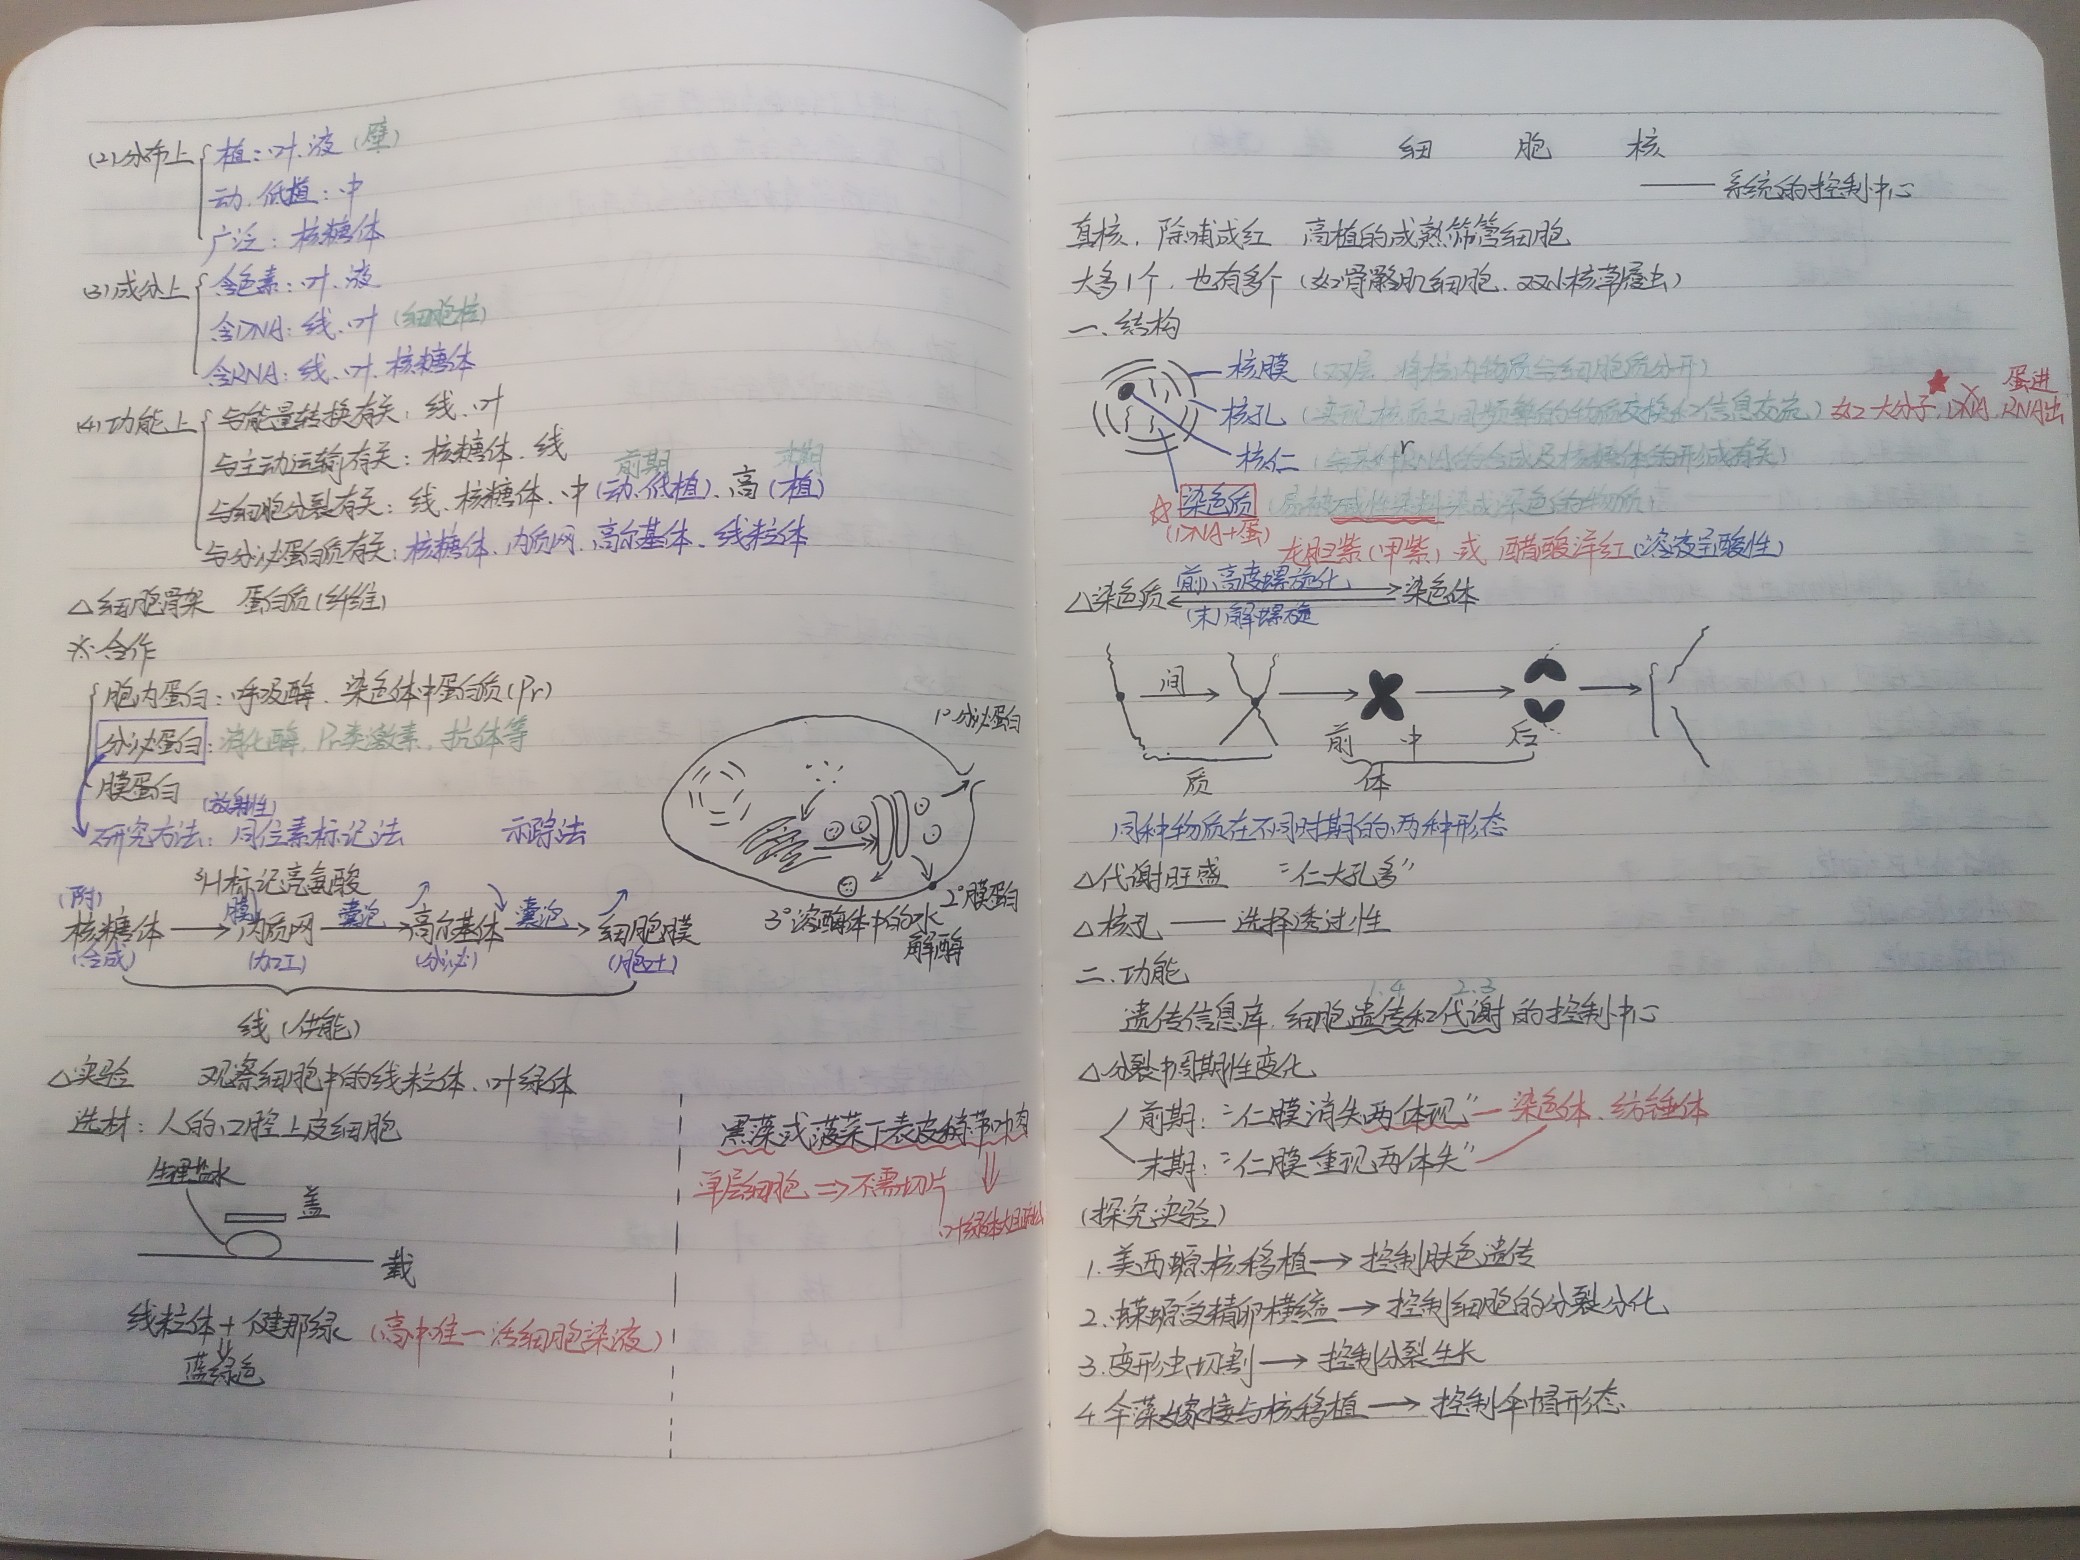 (2)分布上 植：叶.液(壁)
动.低植：中
广泛：核糖体
(3)成分上 含色素：叶.液
含DNA：线.叶 (细胞核)
含RNA：线.叶.核糖体
(4)功能上 与能量转换有关：线.叶
与主动运输有关：核糖体.线
前期 末期
与细胞分裂有关：线.核糖体.中(动.低植).高(植)
与分泌蛋白质有关：核糖体.内质网.高尔基体.线粒体
△细胞骨架 蛋白质(纤维)
※合作
胞内蛋白：呼吸酶.染色体中蛋白质(Pr)
分泌蛋白：消化酶.Pr类激素.抗体等
膜蛋白
(放射性)
研究方法：同位素标记法 示踪法
³H标记亮氨酸
(附) 膜 囊泡 囊泡
核糖体→内质网→高尔基体→细胞膜
(合成) (加工) (分泌) (胞吐)
线(供能)
1°分泌蛋白
2°膜蛋白
3°溶酶体中的水
解酶
△实验 观察细胞中的线粒体.叶绿体
选材：人的口腔上皮细胞
黑藻或菠菜下表皮稍带叶肉
单层细胞⇒不需切片
生理盐水
盖
载
线粒体+健那绿(高中唯一活细胞染液)
蓝绿色
细胞核
——系统的控制中心
真核.除哺成红 高植的成熟筛管细胞
大多1个.也有多个(如骨骼肌细胞.双小核草履虫)
一.结构
核膜(双层.将核内物质与细胞质分开)
核孔(实现核质之间频繁的物质交换和信息交流)如大分子★.DNA.RNA出
蛋进
核仁(与某种rRNA的合成及核糖体的形成有关)
☆染色质(易被碱性染料染成深色的物质)
(DNA+蛋)
龙胆紫(甲紫)或 醋酸洋红(溶液呈酸性)
(前)高度螺旋化
△染色质 染色体
(末)解螺旋
间
前 中 后
质 体
同种物质在不同时期的两种形态
△代谢旺盛 “仁大孔多”
△核孔——选择透过性
二.功能
1.4 2.3
遗传信息库.细胞遗传和代谢的控制中心
△分裂中周期性变化
前期：“仁膜消失两体现”—染色体.纺锤体
末期：“仁膜重现两体失”
(探究实验)
1.美西螈核移植→控制肤色遗传
2.蝾螈受精卵横缢→控制细胞的分裂分化
3.变形虫切割→控制分裂生长
4.伞藻嫁接与核移植→控制伞帽形态